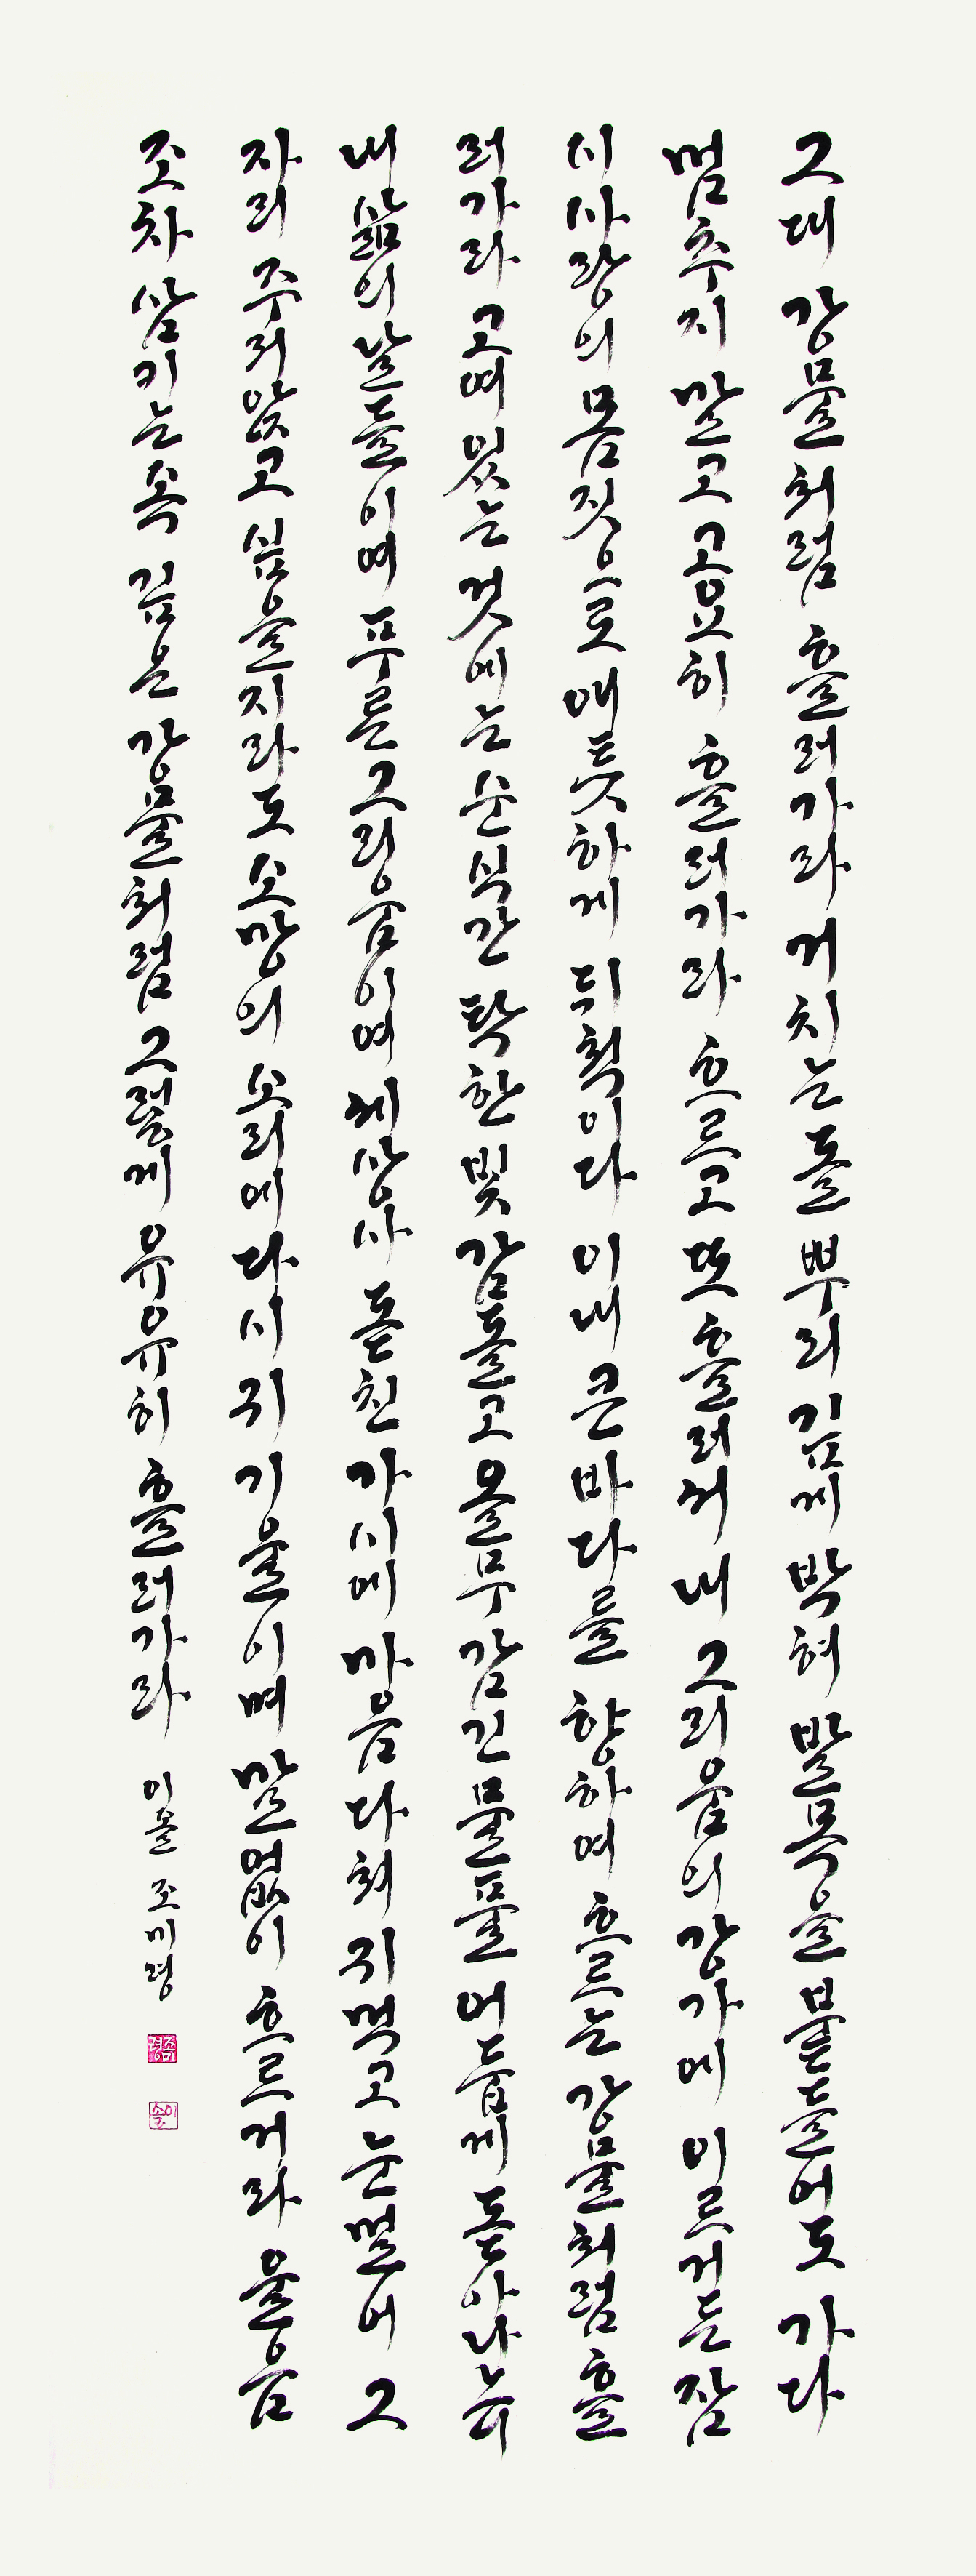 그대 강물처럼 흘러가라 거치는 돌 뿌리 깊게 박혀 발목을 붙들어도 가다
멈추지 말고 고요히 흘러가라 흐르고 또 흘러서 내 그리움의 강가에 이르거든 잠
시 사랑의 몸짓으로 애틋하게 뒤척이다 이내 큰 바다를 향하여 흐르는 강물처럼 흘
러가라 고여 있는 것에는 순식간 탁한 빛 감돌고 올무 감긴 물풀 어둡게
내 삶의 날들이여 푸른 그리움이여 세상사 돋친 가시에 마음 다쳐 귀먹고 눈멀어 그
자리 주저앉고 싶을지라도 소망의 소리에 다시 귀 기울이며 말없이 흐르거라 울음
조차 삼키는 속 깊은 강물처럼 그렇게 유유히 흘러가라 이솔 조미령
조미령
이솔